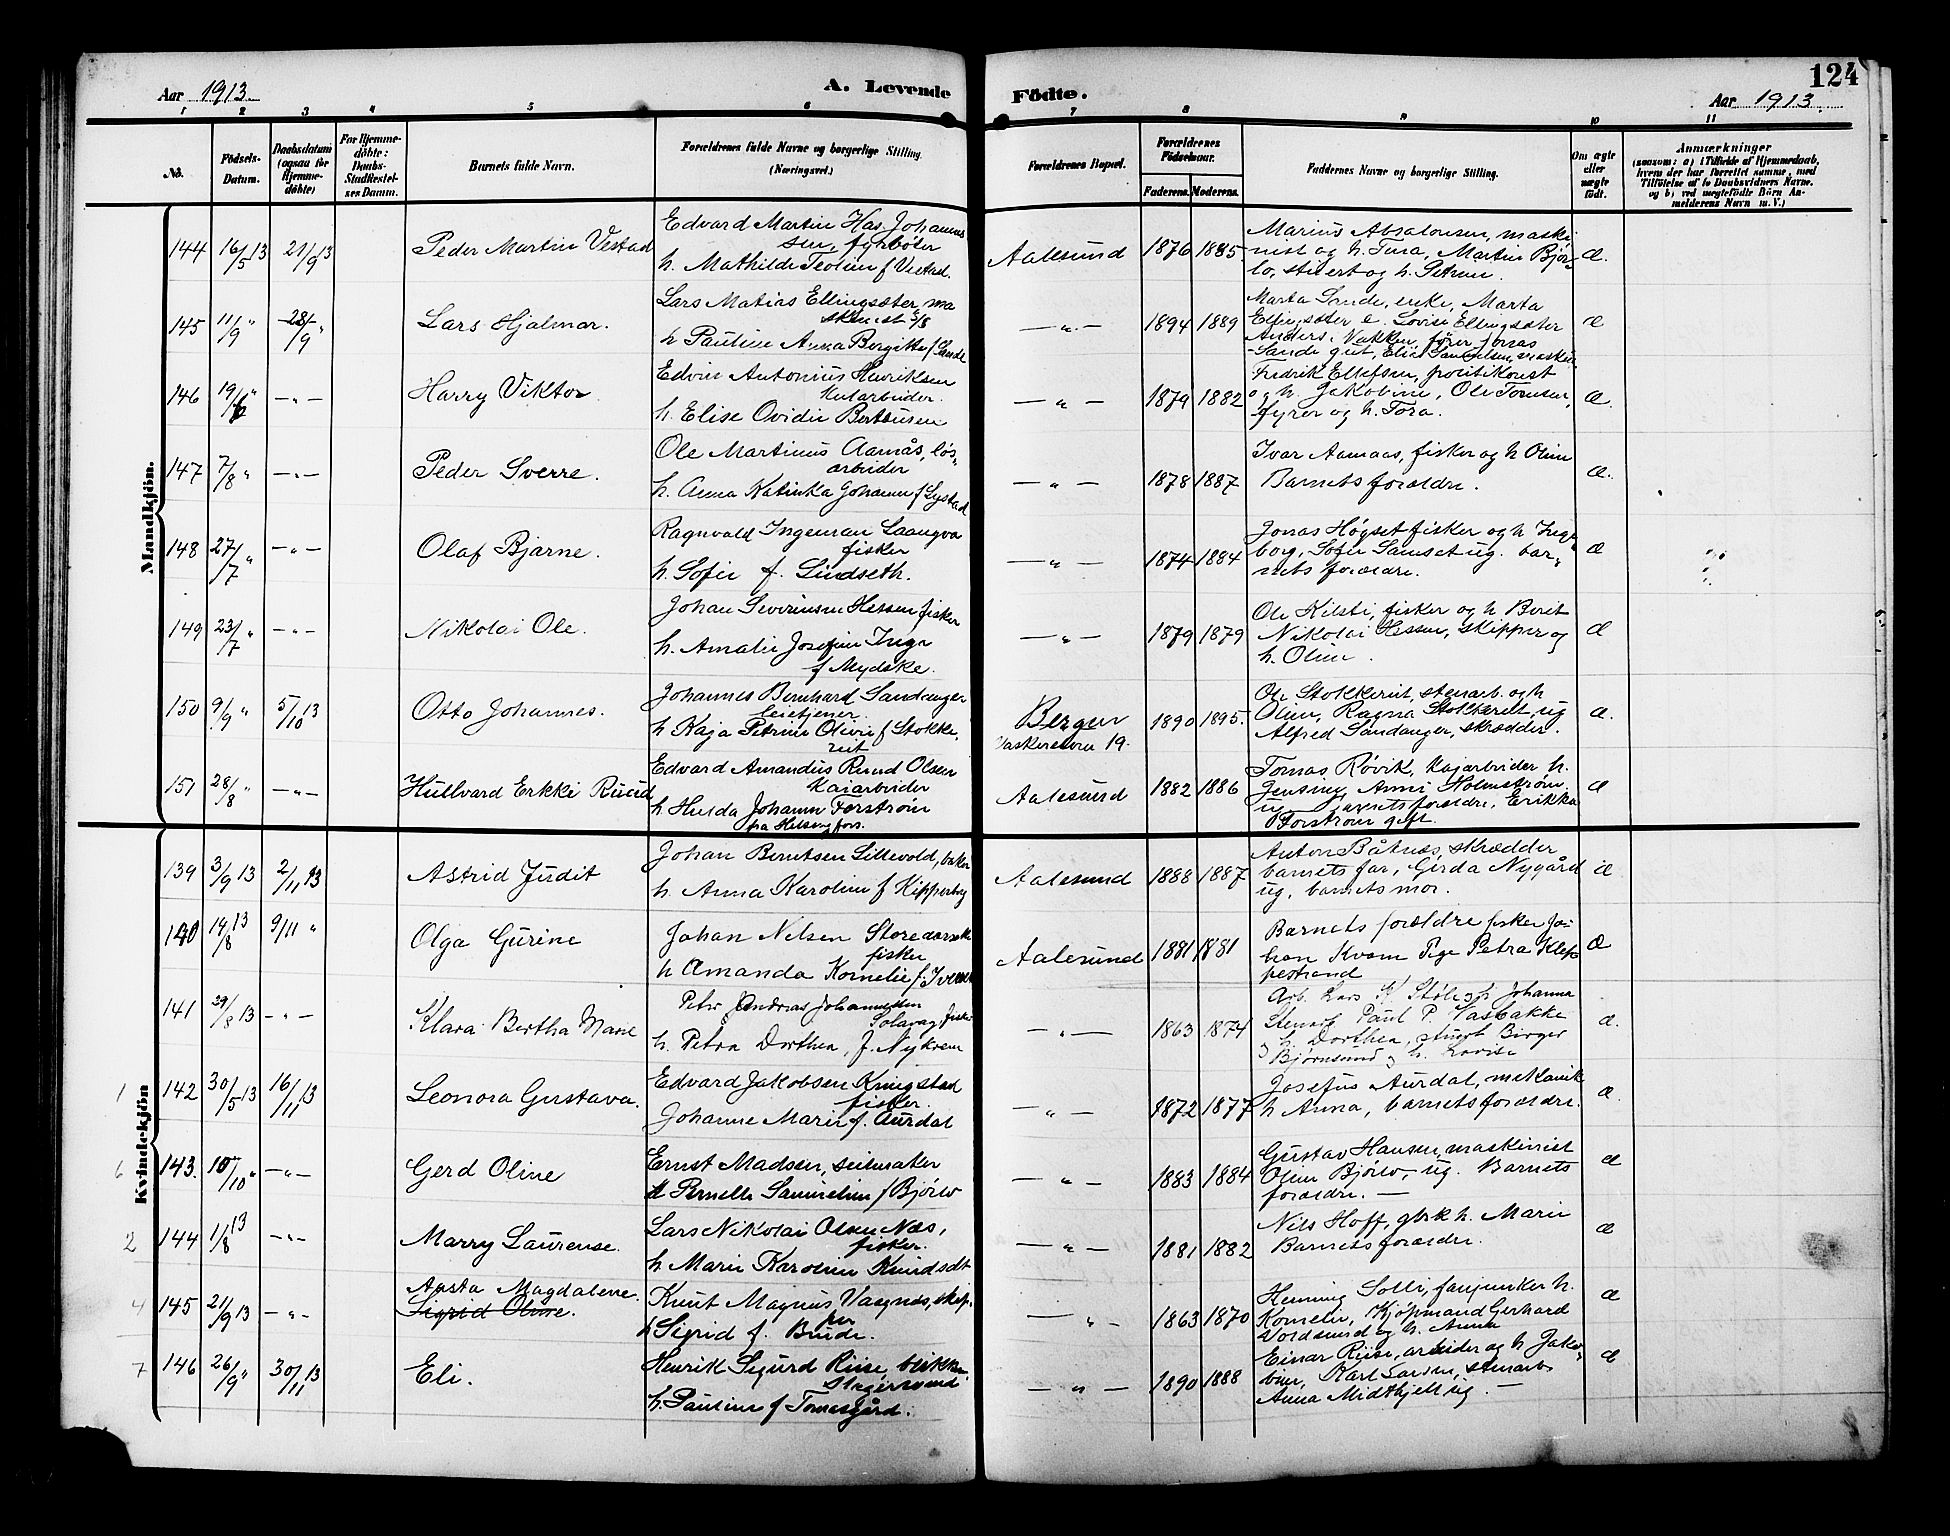 124
Aar 1913.
A. Levende
Födte.
Aar 1913.
1 2 3 4 5 6 7 8 9 10 11
No.
Födsels-Datum.
Daabsdatum (ogsaa for Hjemme-döbte)
For Hjemme-döbte: Daabs-Stadfæstel-ses Datum.
Barnets fulde Navn.
Forældrenes fulde Navne og borgerlige Stilling.
(Næringsvei.)
Forældrenes Bopæl.
Forældrenes Födselsaar.
Faderens. Moderens.
Faddernes Navne og borgerlige Stilling.
Om ægte eller uægte födt.
Anmærkninger
(saasom: a) i Tilfælde af Hjemmedaab,
hvem der har forrettet samme, med
Tilföielse af to Daabsvidners Navne.
og b) ved uægtefödte Börn An-
melderens Navn m. V.)
Mandkjön.
144 16/5 13 21/9 13 Peder Martin Vestad
Edvard Martin Has Johanns
sen, fyrbøter
h. Mathilde Teoline f Vestad.
Aalesund 1876 1885
Marius Absalonsen, maski
nist og h. Tora, Martin Bjør-
lo, stuert og h. Petrine.
æ.
145 11/9 " 28/9 " Lars Hjalmar.
Lars Matias Ellingsæter, ma
skinist
h Pauline Anna Bergitte f Sande
— " — 1894 1889
Marta Sande, enke, Marta
Ellingsæter e. Lovise Ellingsæter
Anders Nakken, fører Jonas
Sande gut, Elias Samuelsen, maskin
æ
146 19/6 " — " — Harry Viktor
Edvin Antonius Henriksen
kularbeider.
h. Elise Ovidie Berthusen
— " — 1879 1882
Fredrik Ellefsen, politikonst
og h. Jakobine, Ole Tomsen,
fyrer og h. Tora.
æ.
147 7/8 " — " — Peder Sverre.
Ole Martinus Aamås, løs-
arbeider
h. Anna Katinka Johanne f Lystad
— " — 1878 1887
Ivar Aamaas, fisker og h Oline
Barnets forældre.
æ.
148 27/7 " — " — Olaf Bjarne.
Ragnvald Ingeman Laangva
fisker
h. Sofie f. Lindseth.
— " — 1874 1884
Jonas Høgset fisker og h Inge-
borg, Sofie Samset ug. bar-
nets forældre.
æ
149 23/7 " — " — Nikolai Ole.
Johan Severinsen Hessen fisker
h. Amalie Josefine Inga
f Mydske.
— " — 1879 1879
Ole Kilsti, fisker og h Berit
Nikolai Hessen, skipper og
h. Oline.
æ
150 9/9 " 5/10 13 Otto Johannes.
Johannes Bernhard Sandanger
leietjener.
h Kaja Petrine Olivie f Stokke,
reit
Bergen
Vaskerelven 19.
1890 1895.
Ole Stokkereit, stenarb. og h
Oline, Ragna Stokkereit, ug
Alfred Sandanger, skrædder.
æ.
151 28/8 " — " — Hullvard Erkki Ruud
Edvard Amandus Ruud Olsen
Kaiarbeider
h Hulda Johanne Forstrøm
fra Helsingfors.
Aalesund 1882 1886
Tomas Røvik, Kajarbeider h.
Jensine, Anni Holmstrøm
ug barnets forældre, Erikka
Forstrøm gift.
æ
Kvindekjön
139 3/9 13 2/11 13 Astrid Judit
Johan Berntsen Lillevold, baker
h Anna Karoline f Kipperberg
Aalesund 1888 1887
Anton Båtnes, skrædder
barnets far, Gerda Nygård
ug, barnets mor.
æ.
140 14/8 13 9/11 " Olga Gurine
Johan Nelsen
fisker
h Amanda Kornelie f Iversen
Aalesund 1881 1881
Barnets forældre fisker Jo-
han Kvam Pige Petra Klep
pestrand
æ
141 29/8 13 — " — Klara Bertha Marie
Peter Andreas Johannessen
Solavag, fisker
h. Petra Dorthea, f. Nykrem
— " — 1863 1874
Arb. Lars K Støle h. Johanna
Stenarb Paul P. Vasbakke
og h. Dorthea, stuert Birger
Bjørnsund og h. Lovise
æ.
1 142 30/5 13 16/11 13 Leonora Gustava.
Edvard Jakobsen Kringstad
fisker.
Johanne Marie f. Aurdal
— " — 1872 1877
Josefus Aurdal, mekanik
h Anna, barnets forældre.
æ.
6 143. 10/10 " — " — Gerd Oline
Ernst Madsen, seilmaker
h Pernelle Samueline f Bjørlo
— " — 1883 1884
Gustav Hansen, maskinist
Oline Bjørlo, ug. Barnets
forældre. —
æ
2 144 1/8 13 — " — Marry Laurense.
Lars Nikolai Olsen Næs,
fisker.
h Marie Karoline Knudsdt
— " — 1881 1882
Nils Hoff, gbrk h. Marie
Barnets forældre.
æ
4 145 21/9 13 — " — Aasta Magdalene.
Sigrid Oline.
Knut Magnus Vaagnæs, skip-
per
h Sigrid f. Bude.
— " — 1863 1870
Henning Solli, fanjunker h.
Kornelie, Kjøpmand Gerhard
Voldsund og h. Anna
æ
7 146 26/9 " 30/11 13 Eli.
Henrik Sigurd Riise, blikken
slagersvend
h. Pauline f Tomasgård.
— " — 1890 1888
Einar Riise, arbeider og h Jako-
bine, Karl Larsen, stenarb
Anna Midthjell ug. —
æ